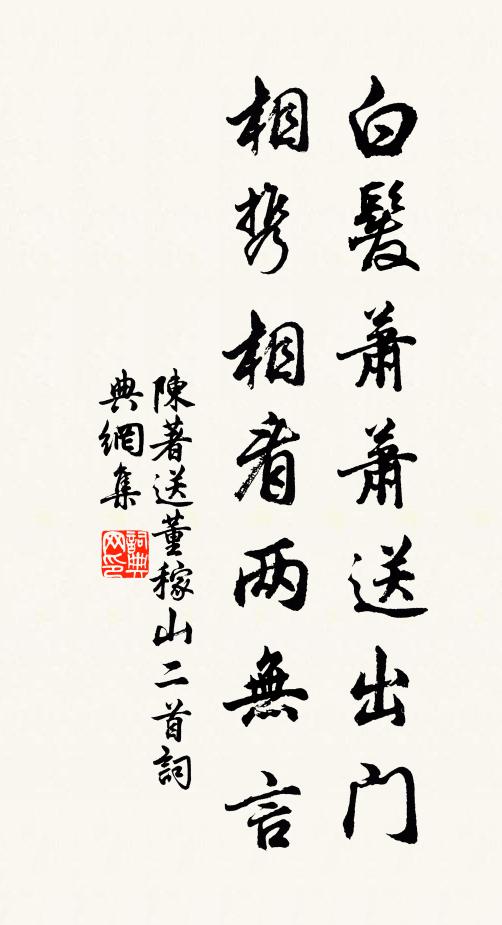 白髮蕭蕭送出门
相携相看两無言
陳著送董稼山二首詞
典網集
詞典
网印